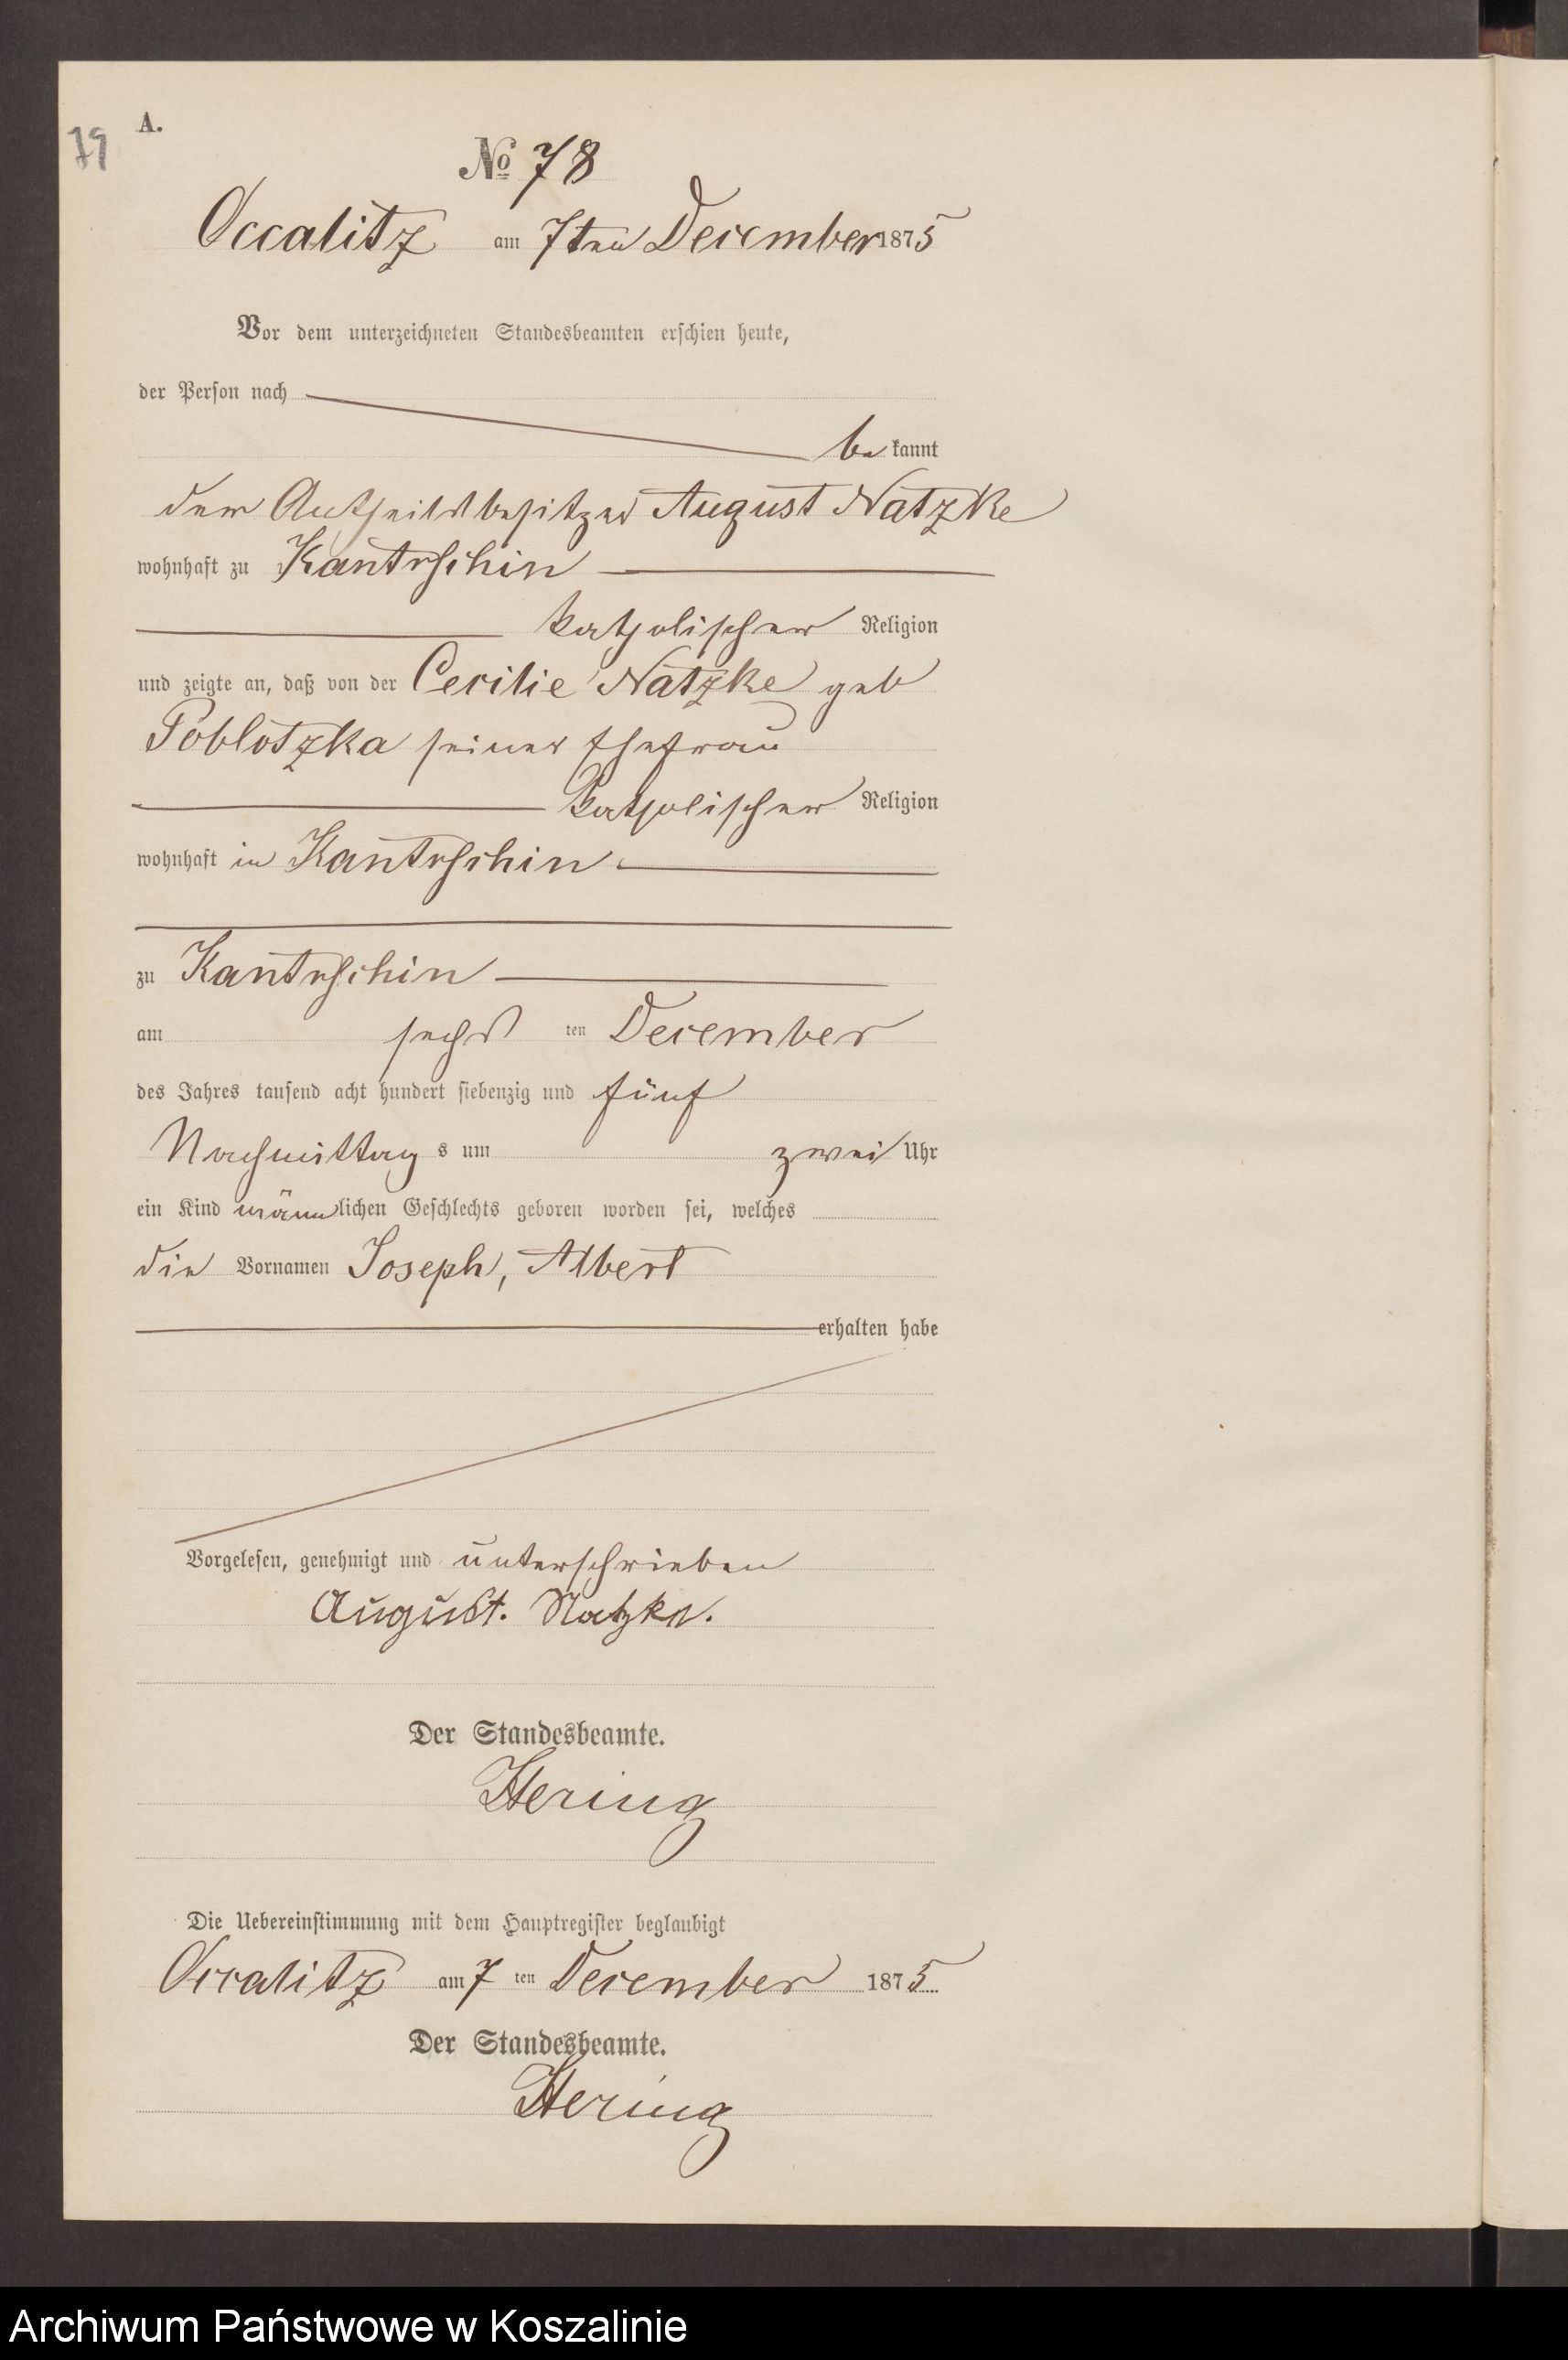 79
A.
№ 78
Occalitz am 7ten December 1875
Vor dem unterzeichneten Standesbeamten erschien heute,
der Person nach
be kannt
der Antheilsbesitzer August Natzke
wohnhaft zu Kantrschin
katholischer Religion
und zeigte an, daß von der Cecilie Natzke geb
Poblotzka seiner Ehefrau
katholischer Religion
wohnhaft in Kantrschin
zu Kantrschin
am sechs ten December
des Jahres tausend acht hundert siebenzig und fünf
Nachmittag s um zwei Uhr
ein Kind männlichen Geschlechts geboren worden sei, welches
die Vornamen Joseph, Albert
erhalten habe
Vorgelesen, genehmigt und unterschrieben
August. Natzke.
Der Standesbeamte.
Hering
Die Uebereinstimmung mit dem Hauptregister beglaubigt
Occalitz am 7 ten December 1875
Der Standesbeamte.
Hering
Archiwum Państwowe w Koszalinie